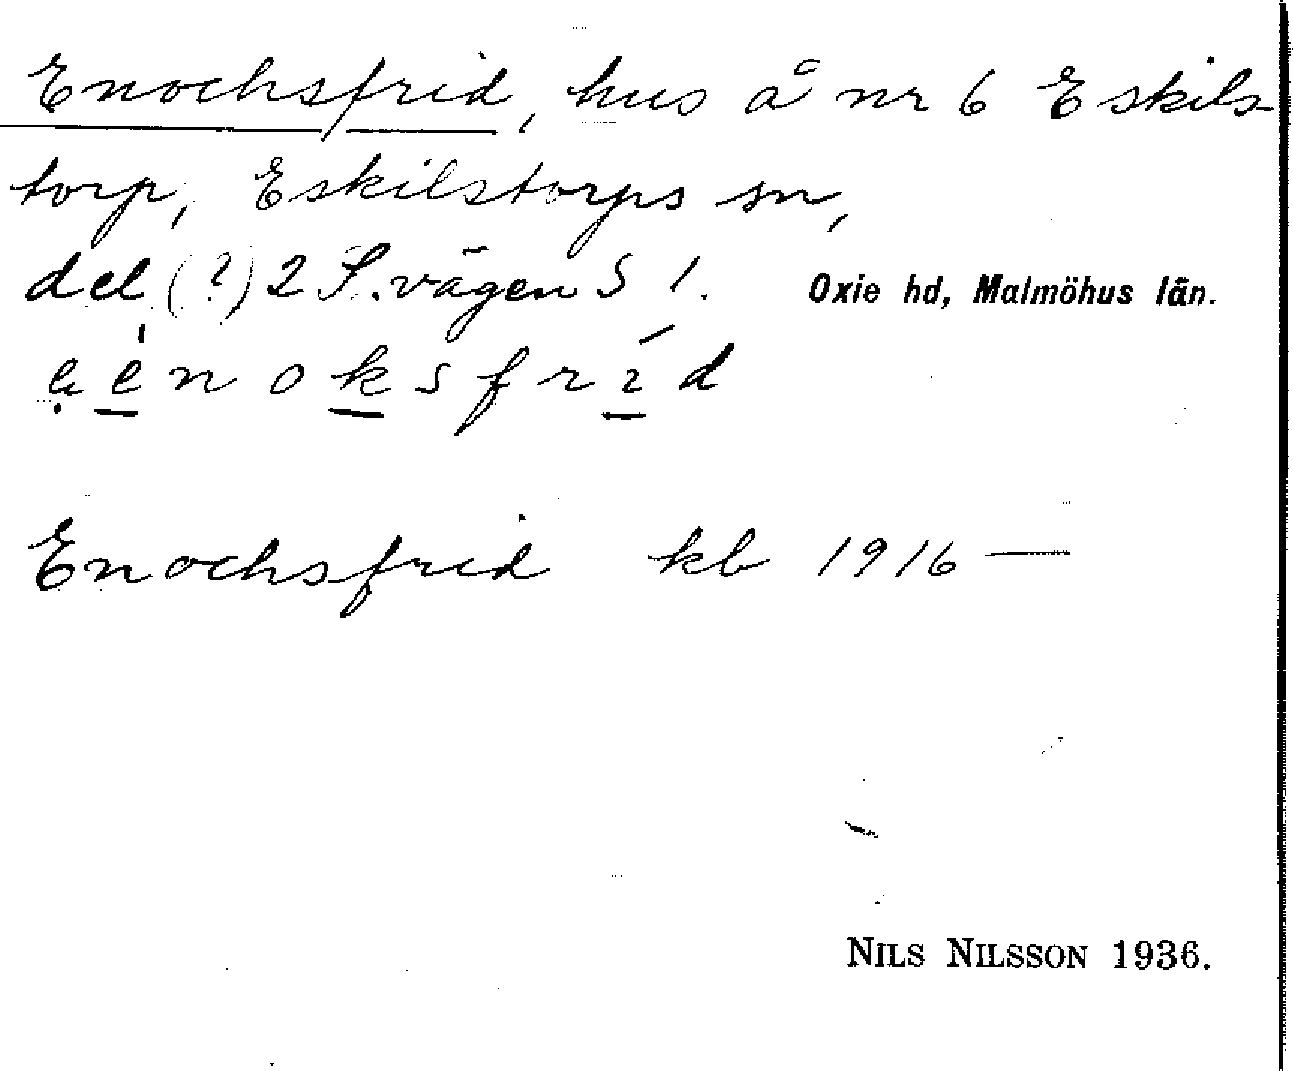 Enochsfrid, hus å nr 6 Eskils-
torp, Eskilstorps sn,
del (?) 2 S. vägen S 1. Oxie hd, Malmöhus län.
enoksfrid
Enochsfrid kb 1916—
NILS NILSSON 1936.